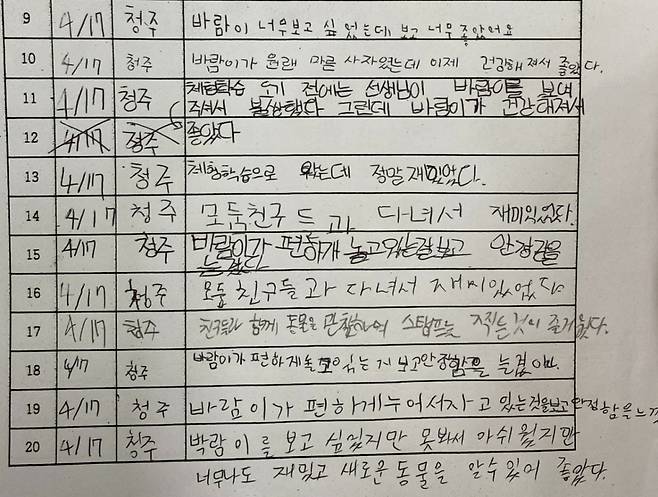 9 4/17 청주 바람이 너무보고 싶었는데 보고 너무 좋았어요
10 4/17 청주 바람이가 원래 마른 사자였는데 이제 건강해져서 좋았다.
11 4/17 청주 체험학습 오기 전에는 선생님이 바람이를 보여
주셔서 불쌍했다 그런데 바람이가 건강해져서
12 4/17 청주 좋았다
13 4/17 청주 체험학습으로 왔는데 정말 재미있었다.
14 4/17 청주 모둠친구들과 다녀서 재미있었다.
15 4/17 청주 바람이가 편하개 놀고있는걸보고 안정감을
느꼈다
16 4/17 청주 모둠 친구들과 다녀서 재미있었다
17 4/17 청주 친구들과 함께 동물을 관찰하며 스탬프를 찍는것이 즐거웠다.
18 4/17 청주 바람이가 편하게 보고안정함을 느꼈
19 4/17 청주 바람이가 편하게누어서자고 있는것을보고 안정함을느낌
20 4/17 청주 박람이를 보고 싶었지만 못봐서 아쉬웠지만
너무나도 재밌고 새로운 동물을 알수있어 좋았다.